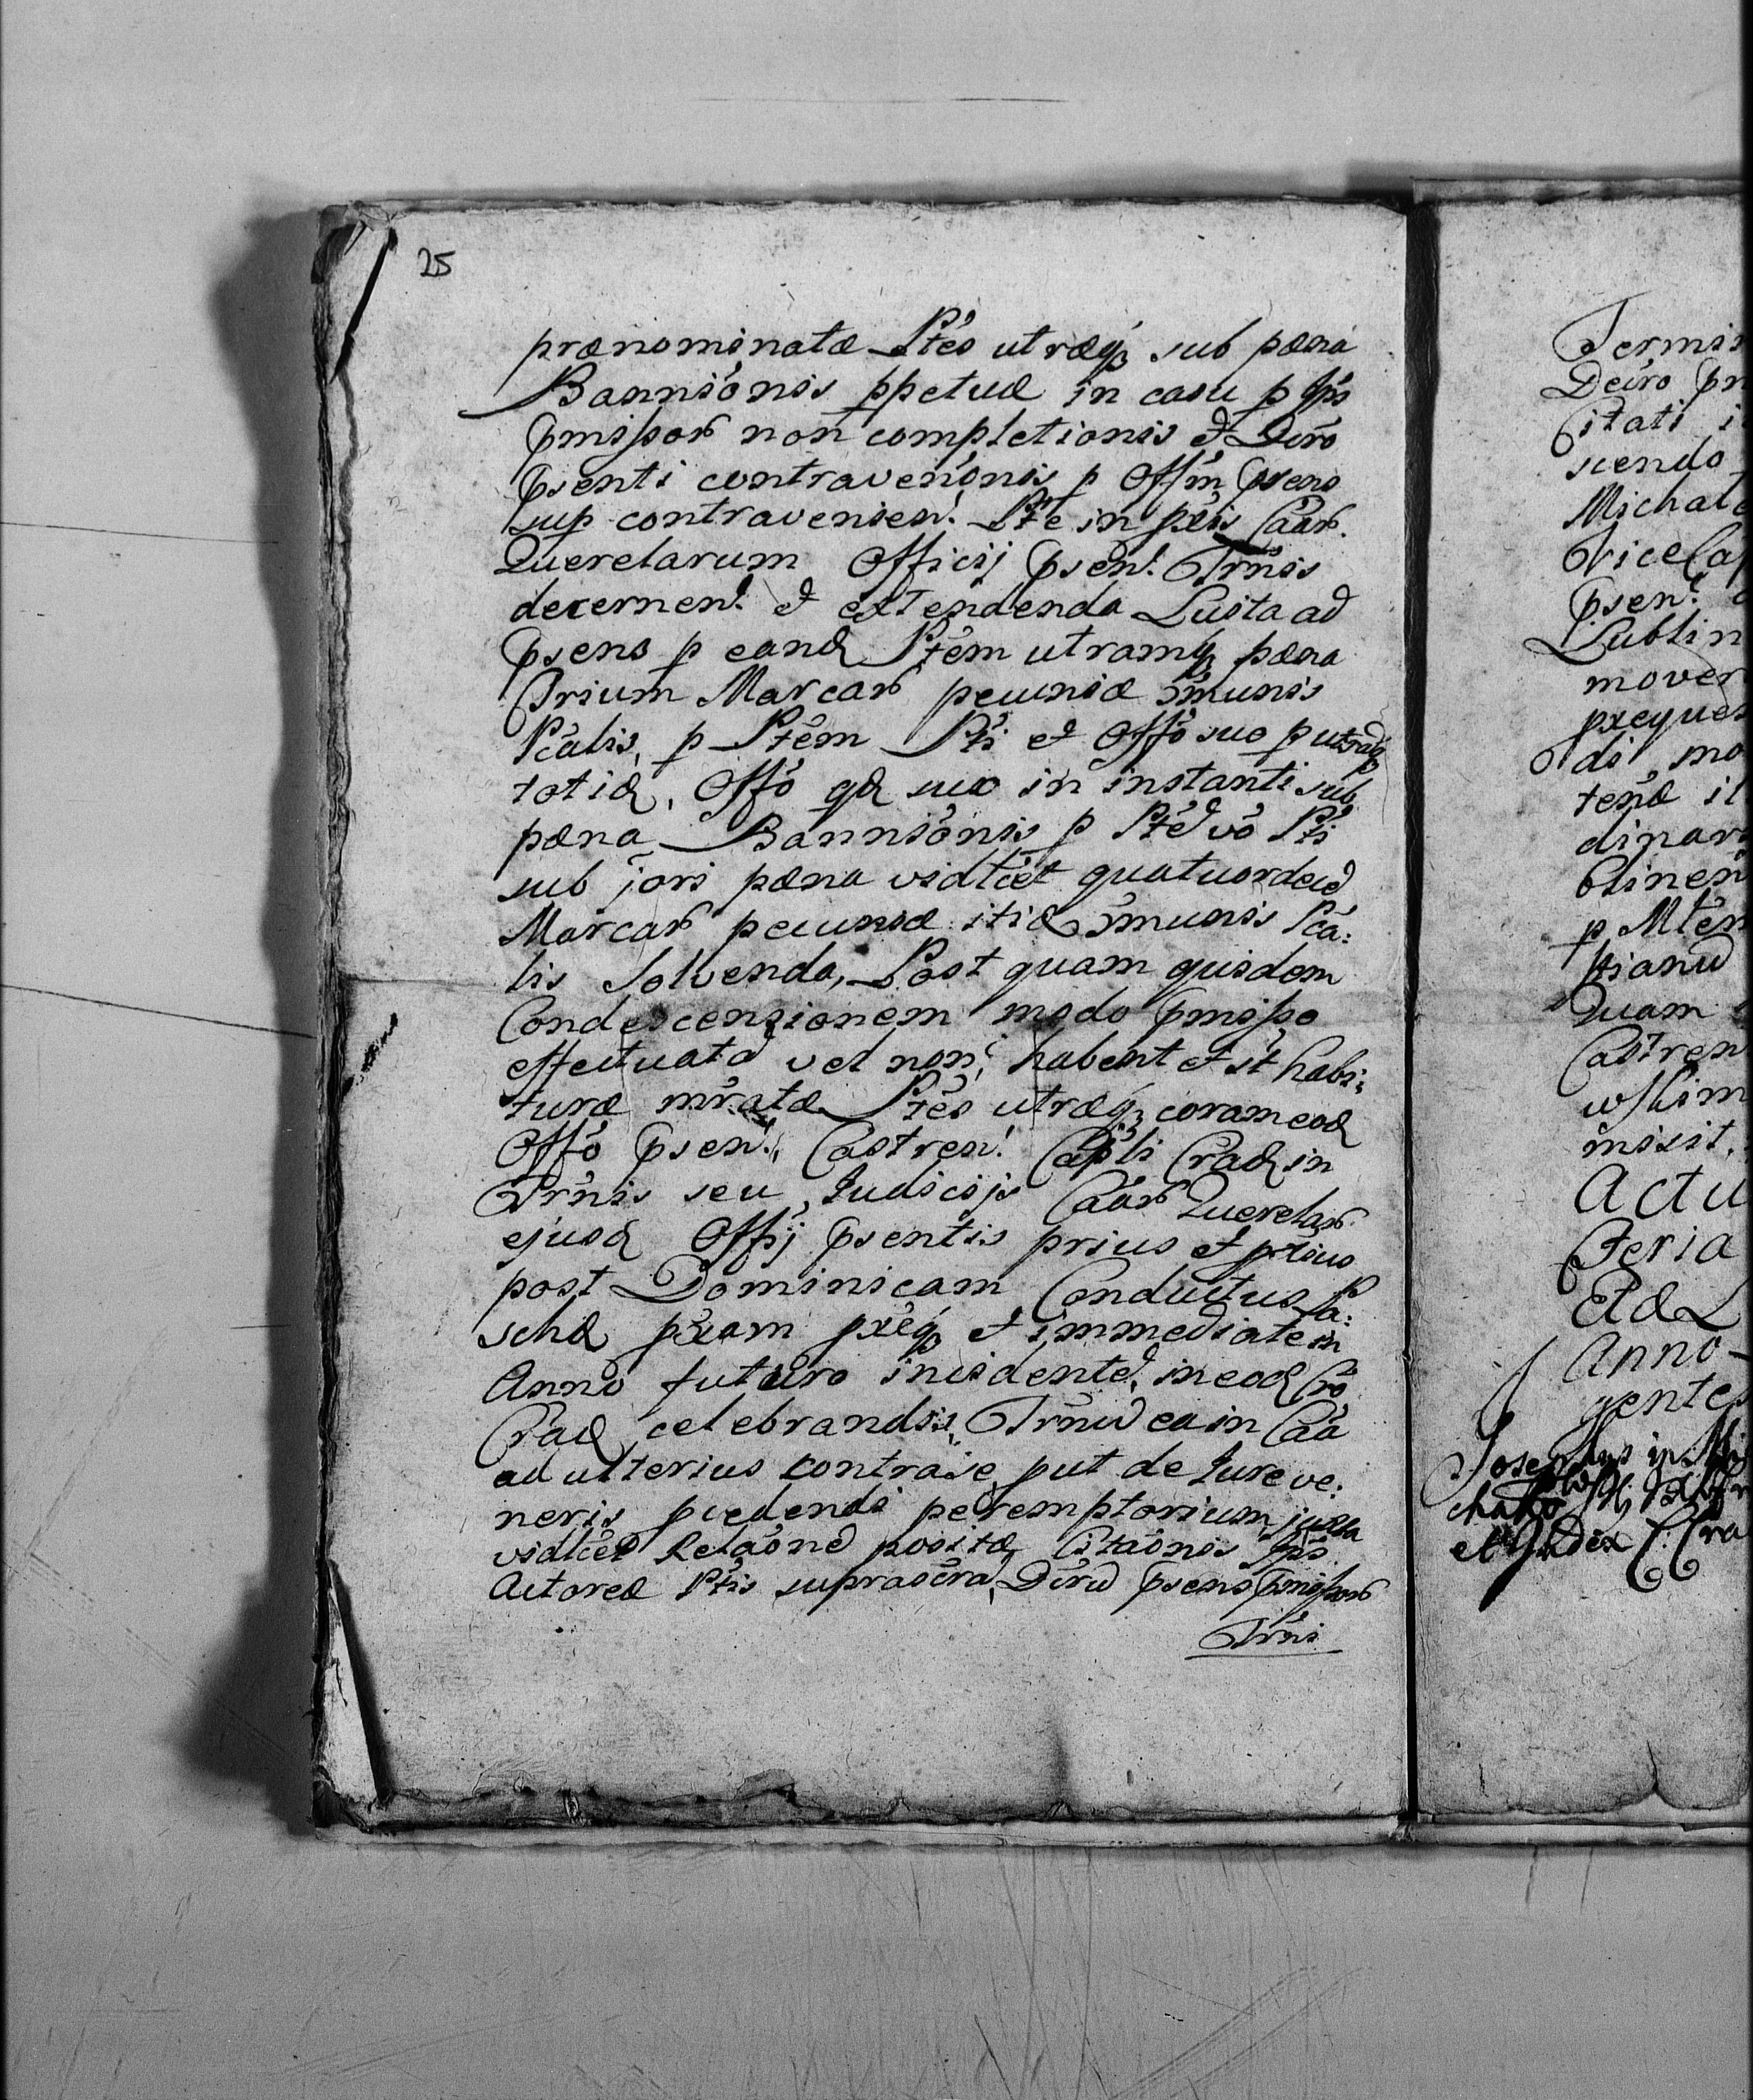 25
prænominatæ Ptes utræq; sub pæna
Bannionis ppetuæ in casu p Ips
pmissor non completionis et Decro
psenti contravenonis p Offm psens
sup contravenien. Pte in pxis Caar.
Querelarum Officij psen. Trnis
decernen. et extendenda Luita ad
psens p eand Ptem utramq; pæna
Trium Marcar pecuniæ ommunis
Pcalis, p Ptem Pti et Offo suo p utramq;
totid, Offo qd suo in instanti sub
pæna Bannionis p Pte vo Pti
sub jori pæna vidtcet quatuordecim
Marcar pecuniæ itid ommunis Pca:
lis Solvenda, Post quam quidem
Condescensionem modo pmisso
effectuata vel non, habent et st habi:
turæ mratæ Ptes utræq; coram eod
Offo psen. Castren. Capli Crad in
Trnis seu Judicijs Caar Querelar
ejusd Offij psentis prius et prius
post Dominicam Conductus Pa:
schæ pxam pxeq; et immediate in
Anno futuro incidente, in eod Cro
Crad celebrandis, Trnu ea in Caa
ad ulterius contraje put de Jure ve:
neris pcedendi peremptorium juxta
vidtcet Relaone positæ Citaonis Ips
Actoreæ Ptis suprascra, Decru psens pmissor
Trni
Termin
Decro pn
Citati i
scendo
Michal
Vice Ca
psen.
Lublin
mover
pxeques
di mo
tenæ il
dinar
btinen
p Mtem
Quam
Castren
wskim
misit.
Actu
Feria
Anno
gentes
Josephus
et Judex C: Cra